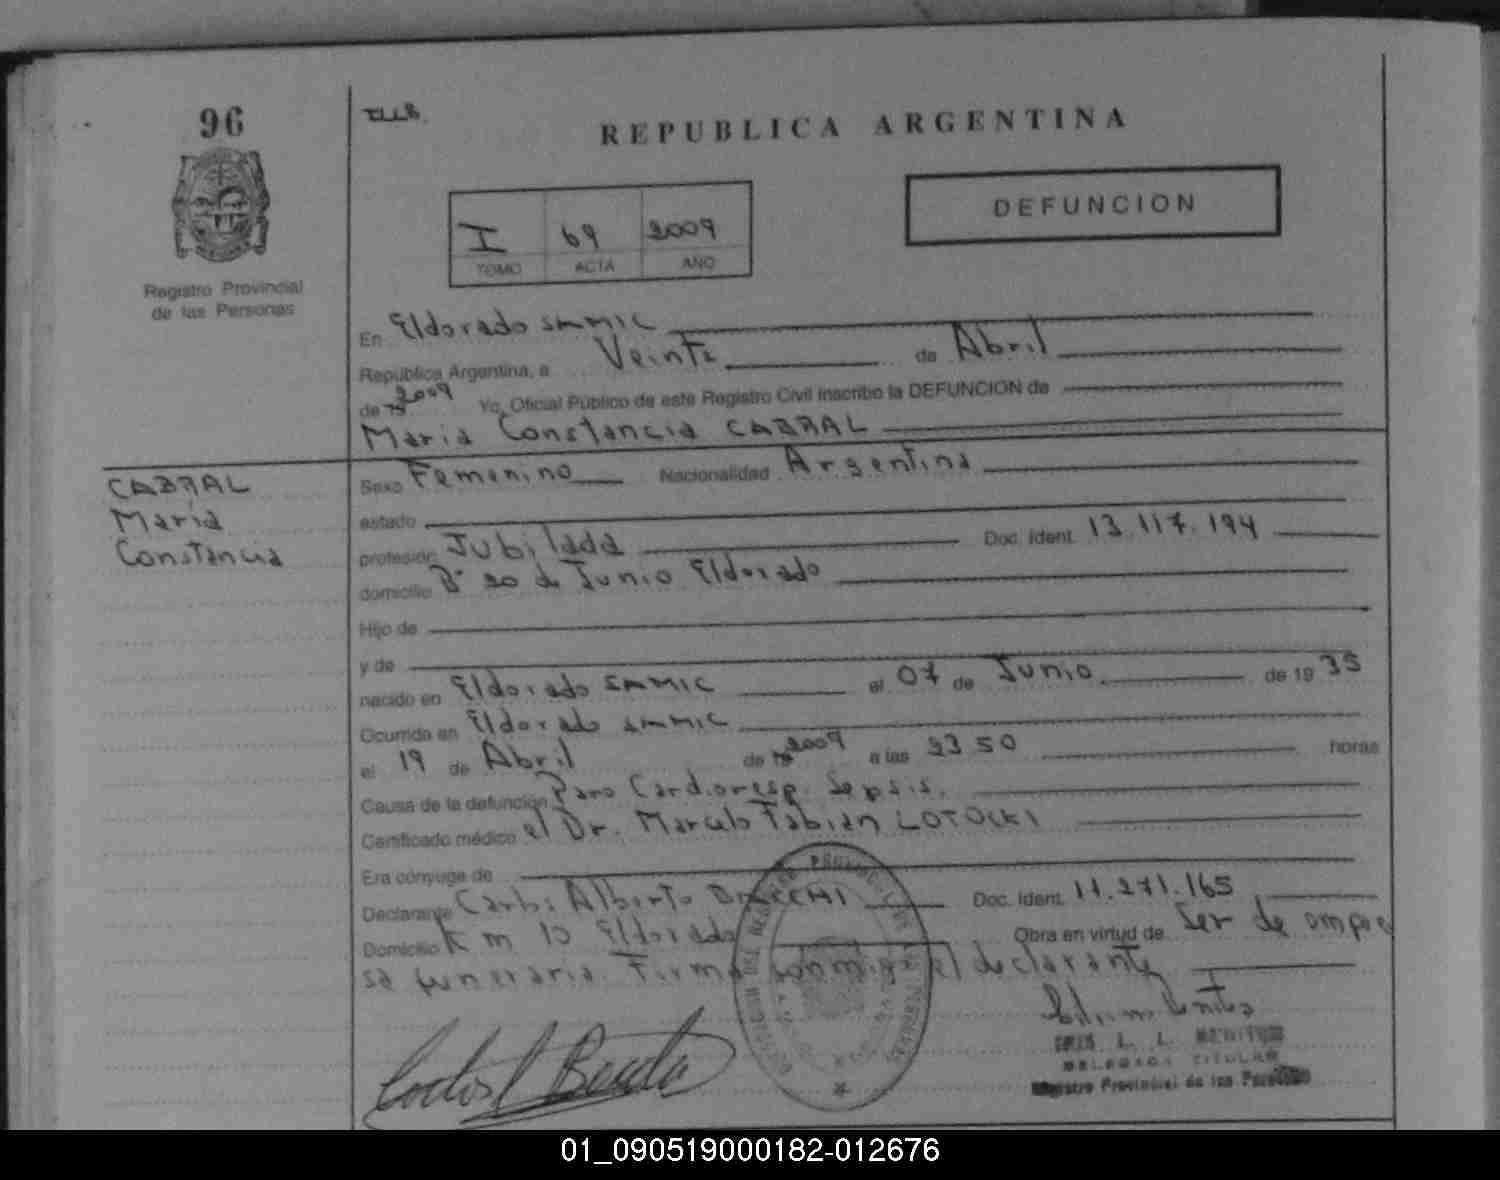 96
REPUBLICA ARGENTINA
DEFUNCION
I 69 2009
TOMO ACTA AÑO
Registro Provincial
de las Personas
En Eldorado SMMIC
República Argentina, a Veinte de Abril
de 19 2009 Yo, Oficial Público de este Registro Civil Inscribo la DEFUNCION de
Maria Constancia CABRAL
CABRAL
Maria
Constancia
Sexo Femenino Nacionalidad Argentina
estado
profesión Jubilada Doc. Ident. 13.117.194
domicilio Bº 20 de Junio Eldorado
Hijo de
y de
nacido en Eldorado SMMIC el 07 de Junio de 1935
Ocurrida en Eldorado SMMIC
el 19 de Abril de 19 2009 a las 23 50 horas
Causa de la defunción Paro Cardioresp. Sepsis.
Certificado médico el Dr. Marcelo Fabian LOTOCKI
Era cónyuge de
Declarante Carlos Alberto Doc. Ident. 11.271.165
Domicilio Km 10 Eldorado Obra en virtud de Ser de empre
sa funeraria. Firma conmigo el declarante
DELEGADA TITULAR
Registro Provincial de las Personas
01_090519000182-012676